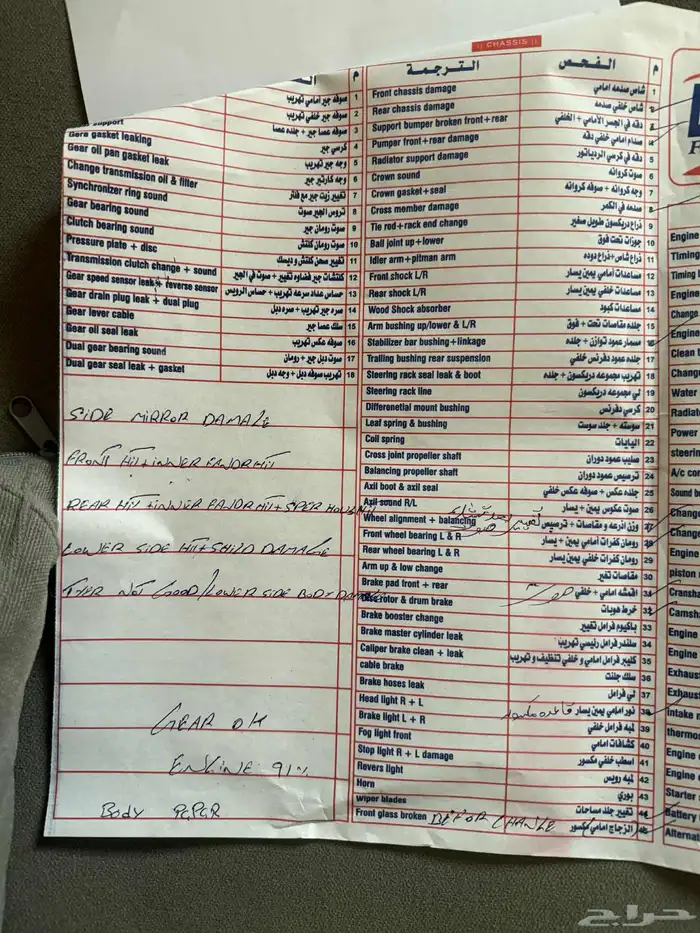 || CHASSIS ||
م
الفحص
الترجمة
م
1 شاص صدمه امامي Front chassis damage
2 شاص خلفي صدمه Rear chassis damage
3 دقه في الجسر الأمامي + الخلفي Support bumper broken front + rear
4 صدام امامي خلفي دقه Pumper front + rear damage
5 دقه في كرسي الردياتور Radiator support damage
6 صوت كرونه Crown sound
7 وجه كرونه + صوفه كرونه Crown gasket + seal
8 صدمه في الكمر Cross member damage
9 ذراع دريكسون طويل صغير Tie rod + rack end change
10 جوزات تحت فوق Ball joint up + lower
11 ذراع شاص + ذراع دوده Idler arm + pitman arm
12 مساعدات أمامي يمين يسار Front shock L/R
13 مساعدات خلفي يمين يسار Rear shock L/R
14 مساعدات كبود Wood Shock absorber
15 جلده مقاصات تحت + فوق Arm bushing up/lower & L/R
16 مسمار عمود توازن + جلده Stabilizer bar bushing + linkage
17 جلده عمود دفرنس خلفي Tralling bushing rear suspension
18 تهريب مجموعه دريكسون + جلده Steering rack seal leak & boot
19 لي مجموعه دريكسون Steering rack line
20 كرسي دفرنس Differenetial mount bushing
21 سوسته + جلد سوست Leaf spring & bushing
22 اليايات Coil spring
23 صليب عمود دوران Cross joint propeller shaft
24 ترصيص عمود دوران Balancing propeller shaft
25 جلده عكس + صوفه عكس خلفي Axil boot & axil seal
26 صوت عكوس يمين + يسار Axil sound R/L
27 وزن اذرعه و مقاصات + ترصيص Wheel alignment + balancing
28 رومان كفرات أمامي يمين + يسار Front wheel bearing L & R
29 رومان كفرات خلفي يمين يسار Rear wheel bearing L & R
30 مقاصات تغير Arm up & low change
31 اقمشه امامي + خلفي Brake pad front + rear
32 خرط هوبات rotor & drum brake
33 باكيوم فرامل تغيير Brake booster change
34 سلندر فرامل رئيسي تهريب Brake master cylinder leak
35 كليبر فرامل امامي و خلفي تنظيف و تهريب Caliper brake clean + leak
36 سلك جلنت cable brake
37 لي فرامل Brake hoses leak
38 نور أمامي يمين يسار قاعده مكسور Head light R + L
39 لمبه فرامل خلفي Brake light L + R
40 كشافات امامي Fog light front
41 اسطب خلفي مكسور Stop light R + L damage
42 لمبه رويس Revers light
43 بوري Horn
44 تغيير جلد مساحات wiper blades
45 الزجاج امامي مكسور Front glass broken BEFOR CHANGE
1 صوفه جير امامي تهريب
2 صوفه جير خلفي تهريب
3 صوفه عصا جير + جلده عصا support
4 كرسي جير Gera gasket leaking
5 وجه جير تهريب Gear oil pan gasket leak
6 وجه كارتير جير Change transmission oil & filler
7 تغيير زيت جير مع فلتر Synchronizer ring sound
8 تروس الجير صوت Gear bearing sound
9 صوت رومان جير Clutch bearing sound
10 صوت رومان كلتش Pressure plate + disc
11 تغيير صحن كلتش و ديسك Transmission clutch change + sound
12 كلتشات جير قضاوه تغيير + صوت في الجير Gear speed sensor leak + reverse sensor
13 حساس عداد سرعه تهريب + حساس الرويس Gear drain plug leak + dual plug
14 سره جير تهريب + سره دبل Gear lever cable
15 سلك عصا جير Gear oil seal leak
16 صوفه عكس تهريب Dual gear bearing sound
17 صوت دبل جير + رومان Dual gear seal leak + gasket
18 تهريب صوفه دبل + وجه دبل
SIDE MIRROR DAMAGE
FRONT HIT + INNER FANDR HIT
REAR HIT + INNER FANDR HIT + SPER HOUSING
LOWER SIDE HIT + SHILD DAMAGE
TYER NOT GOOD / LOWER SIDE BODY DAMAGE
GEAR OK
ENGINE 91%
BODY PEPER
Engine
Timing
Timing
Engine
Change
Engine
Clean
Change
Water
Radiat
Power
steerin
A/c co
Sound
Change
Change
Engine
piston
Cransha
Camsh
Engine
Engine
Exhaus
Exhaus
Intake
thermos
Engine
Engine
Starter
Battery
Alternat
حراج